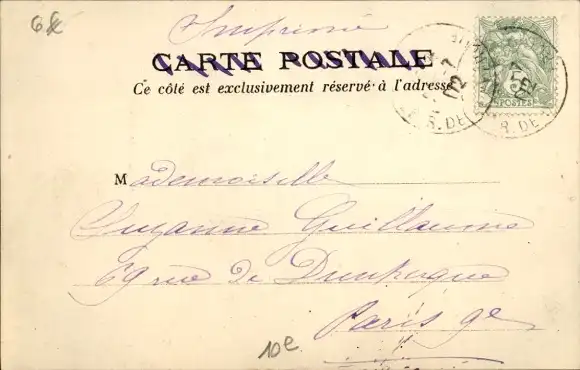 6€
Imprimé
CARTE POSTALE
Ce côté est exclusivement réservé à l'adresse
Mademoiselle
Suzanne Guillaume
69 rue de Dunkerque
Paris 9e
10e
5
POSTES
R. DE
R. DE